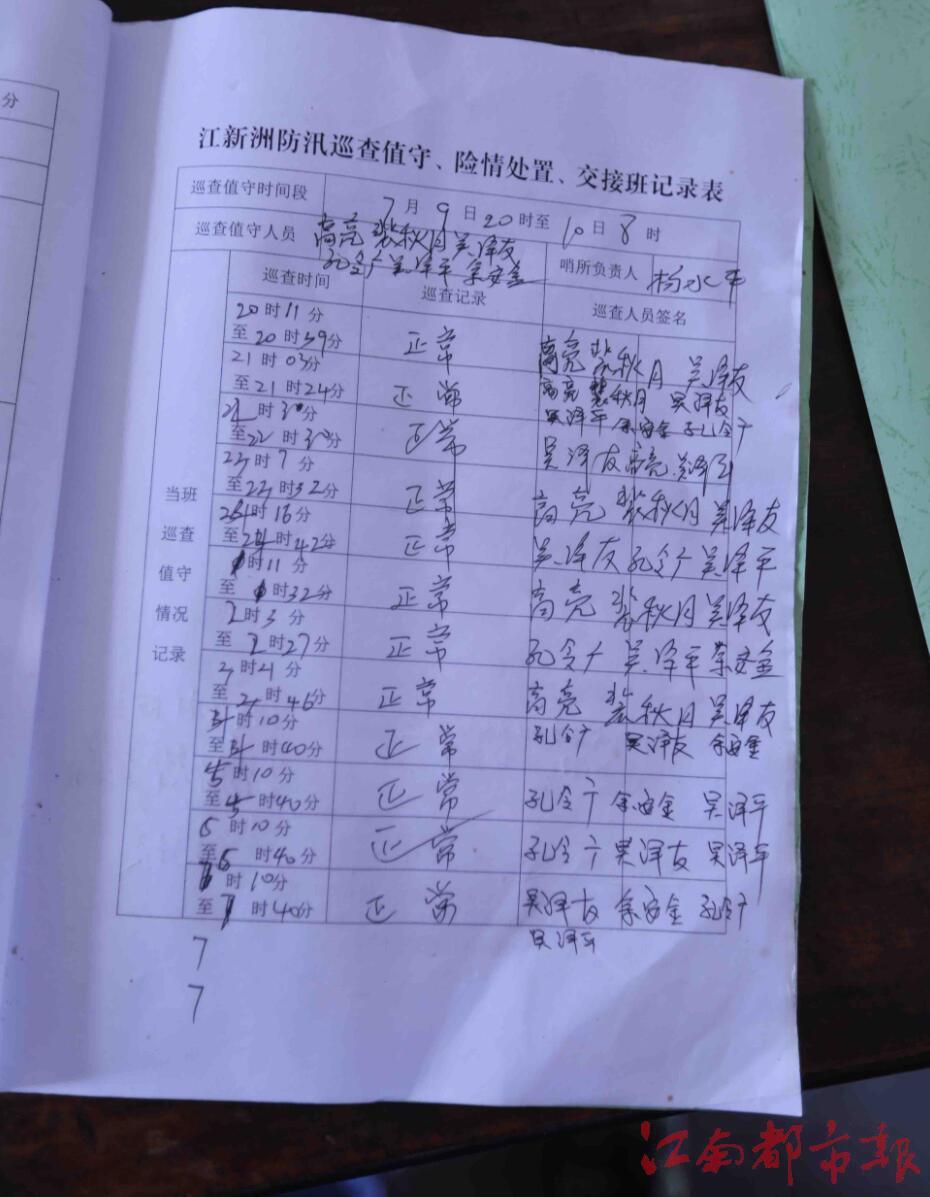 分
江新洲防汛巡查值守、险情处置、交接班记录表
巡查值守时间段 7月9日20时至10日8时
巡查值守人员 高亮 裴秋月 吴泽友
孔令广 吴泽平 余安金
哨所负责人 杨水平
巡查时间 巡查记录 巡查人员签名
当班巡查值守情况记录
20时11分
至20时39分 正常 高亮 裴秋月 吴泽友
21时03分
至21时24分 正常 高亮 裴秋月 吴泽友
吴泽平 余安金 孔令广
22时3分
至22时3分 正常 吴泽友 高亮 吴泽平
23时7分
至23时32分 正常 高亮 裴秋月 吴泽友
24时16分
至24时42分 正常 吴泽友 孔令广 吴泽平
1时11分
至1时32分 正常 高亮 裴秋月 吴泽友
2时3分
至2时27分 正常 孔令广 吴泽平 余安金
时4分
至时46分 正常 高亮 裴秋月 吴泽友
时10分
至时40分 正常 孔令广 吴泽友 余安金
5时10分
至5时40分 正常 孔令广 余安金 吴泽平
6时10分
至6时40分 正常 孔令广 吴泽友 吴泽平
7时10分
至7时40分 正常 吴泽友 余安金 孔令广
吴泽平
7
7
江南都市報